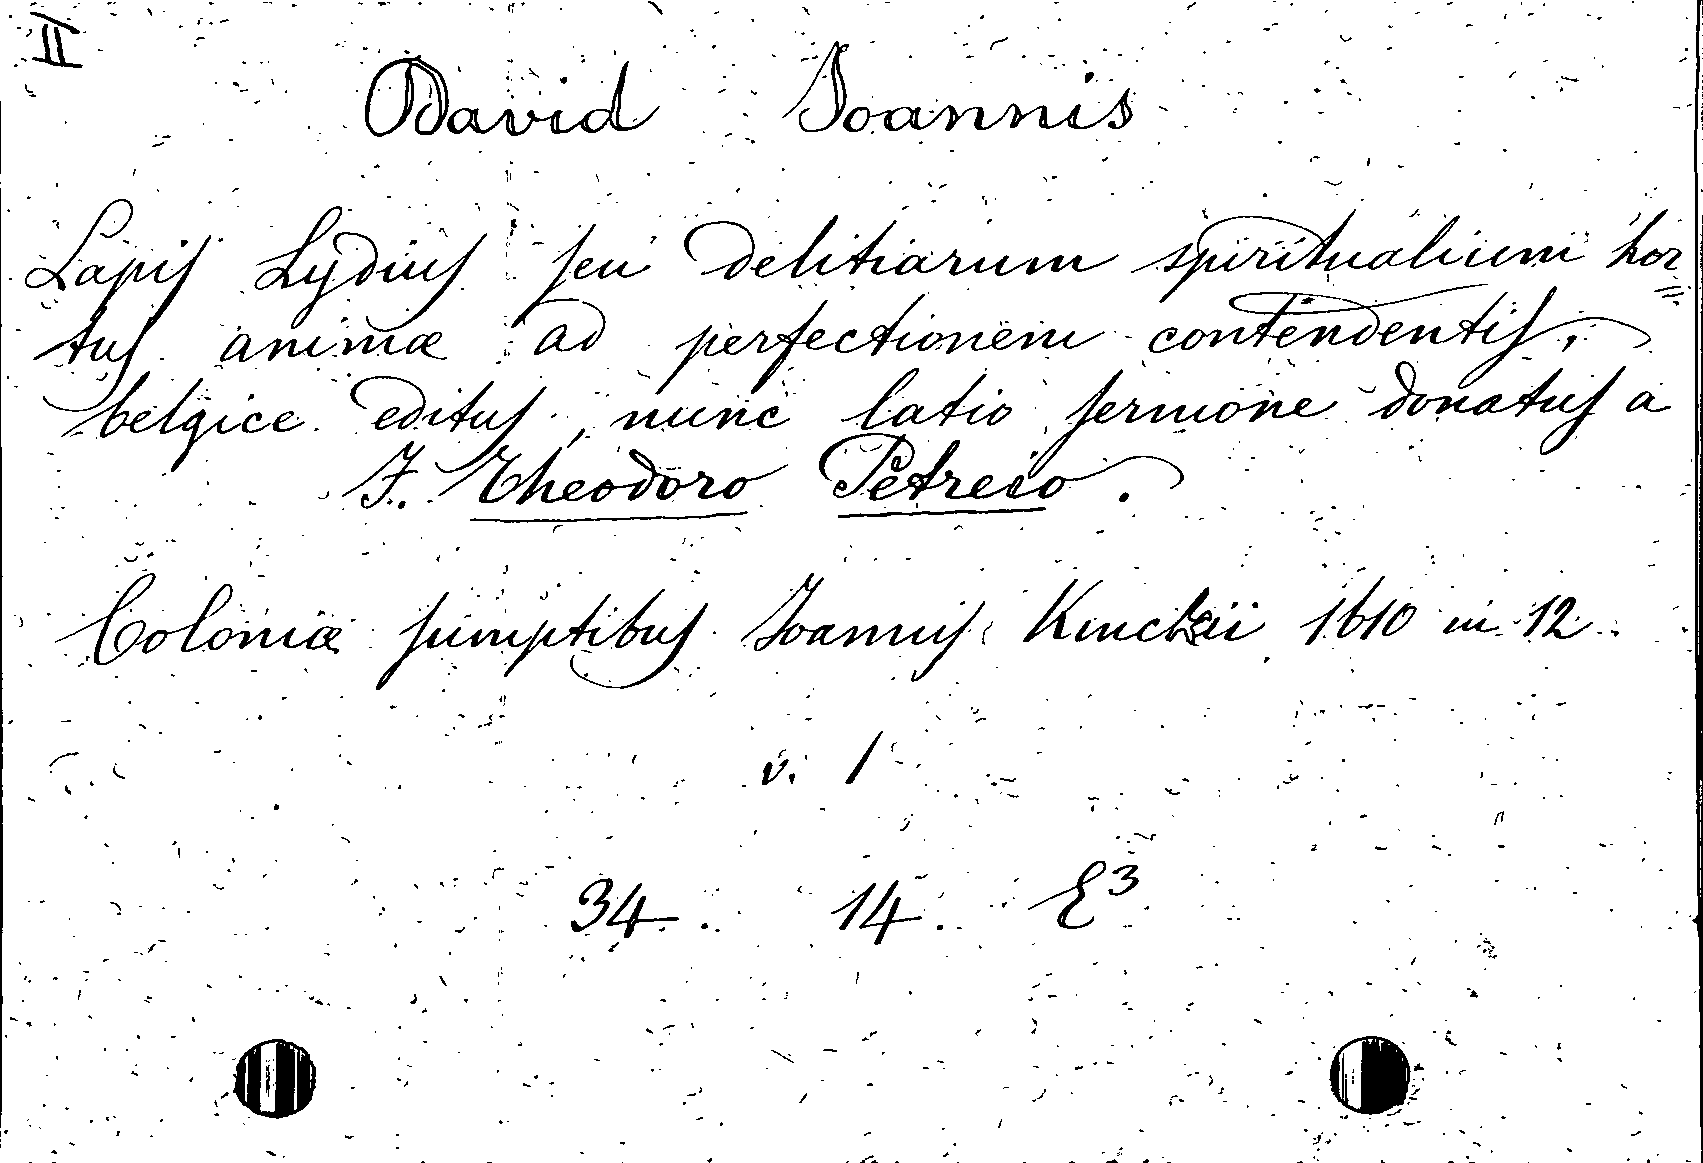 II
David Joannis
Lapis Lydius seu delitiarum spiritualium hor=
tus animæ ad perfectionem contendentis,
belgice editus, nunc latio sermone donatus a
F. Theodoro Petreio.
Coloniæ sumptibus Joannis Kinckii 1610 in 12
v. 1
34. 14. E3